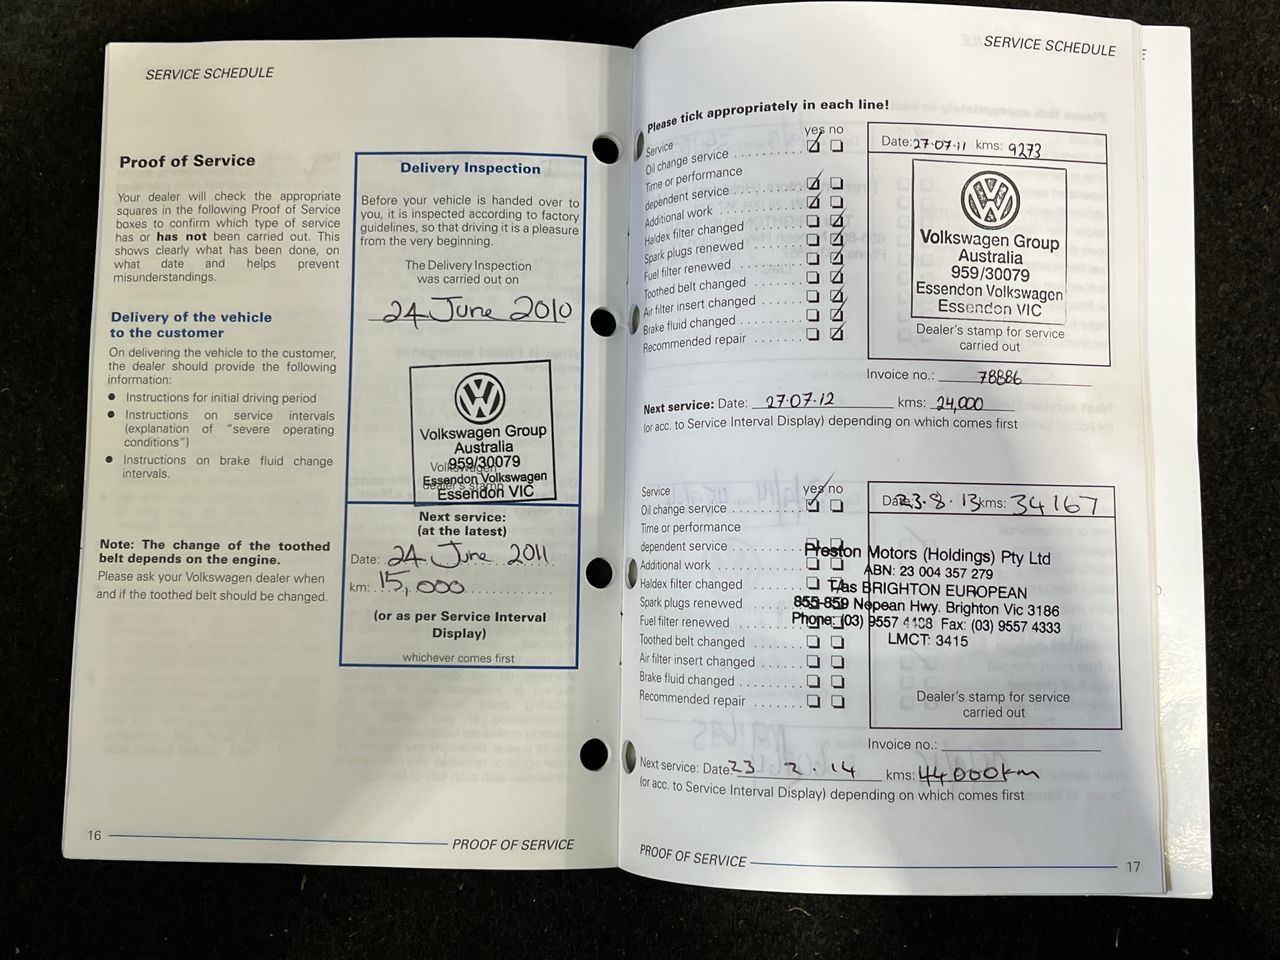 SERVICE SCHEDULE
Proof of Service
Your dealer will check the appropriate
squares in the following Proof of Service
boxes to confirm which type of service
has or has not been carried out. This
shows clearly what has been done, on
what date and helps prevent
misunderstandings.
Delivery of the vehicle
to the customer
On delivering the vehicle to the customer,
the dealer should provide the following
information:
● Instructions for initial driving period
● Instructions on service intervals
(explanation of "severe operating
conditions")
● Instructions on brake fluid change
intervals.
Note: The change of the toothed
belt depends on the engine.
Please ask your Volkswagen dealer when
and if the toothed belt should be changed.
Delivery Inspection
Before your vehicle is handed over to
you, it is inspected according to factory
guidelines, so that driving it is a pleasure
from the very beginning.
The Delivery Inspection
was carried out on
24 June 2010
Volkswagen Group
Australia
959/30079
Essendon Volkswagen
Essendon VIC
Volkswagen
dealer's stamp
Next service:
(at the latest)
Date: 24 June 2011
km: 15,000
(or as per Service Interval
Display)
whichever comes first
16
PROOF OF SERVICE
SERVICE SCHEDULE
Please tick appropriately in each line!
yes no
Service
Oil change service
Time or performance
dependent service
Additional work
Haldex filter changed
Spark plugs renewed
Fuel filter renewed
Toothed belt changed
Air filter insert changed
Brake fluid changed
Recommended repair
Date: 27·07·11 kms: 9273
Volkswagen Group
Australia
959/30079
Essendon Volkswagen
Essendon VIC
Dealer's stamp for service
carried out
Invoice no.: 78886
Next service: Date: 27·07·12 kms: 24,000
(or acc. to Service Interval Display) depending on which comes first
yes no
Service
Oil change service
Time or performance
dependent service
Additional work
Haldex filter changed
Spark plugs renewed
Fuel filter renewed
Toothed belt changed
Air filter insert changed
Brake fluid changed
Recommended repair
Date: 23·8·13 kms: 34167
Preston Motors (Holdings) Pty Ltd
ABN: 23 004 357 279
T/as BRIGHTON EUROPEAN
855-859 Nepean Hwy. Brighton Vic 3186
Phone: (03) 9557 4488 Fax: (03) 9557 4333
LMCT: 3415
Dealer's stamp for service
carried out
Invoice no.:
Next service: Date: 23 2·14 kms: 44000km
(or acc. to Service Interval Display) depending on which comes first
PROOF OF SERVICE
17